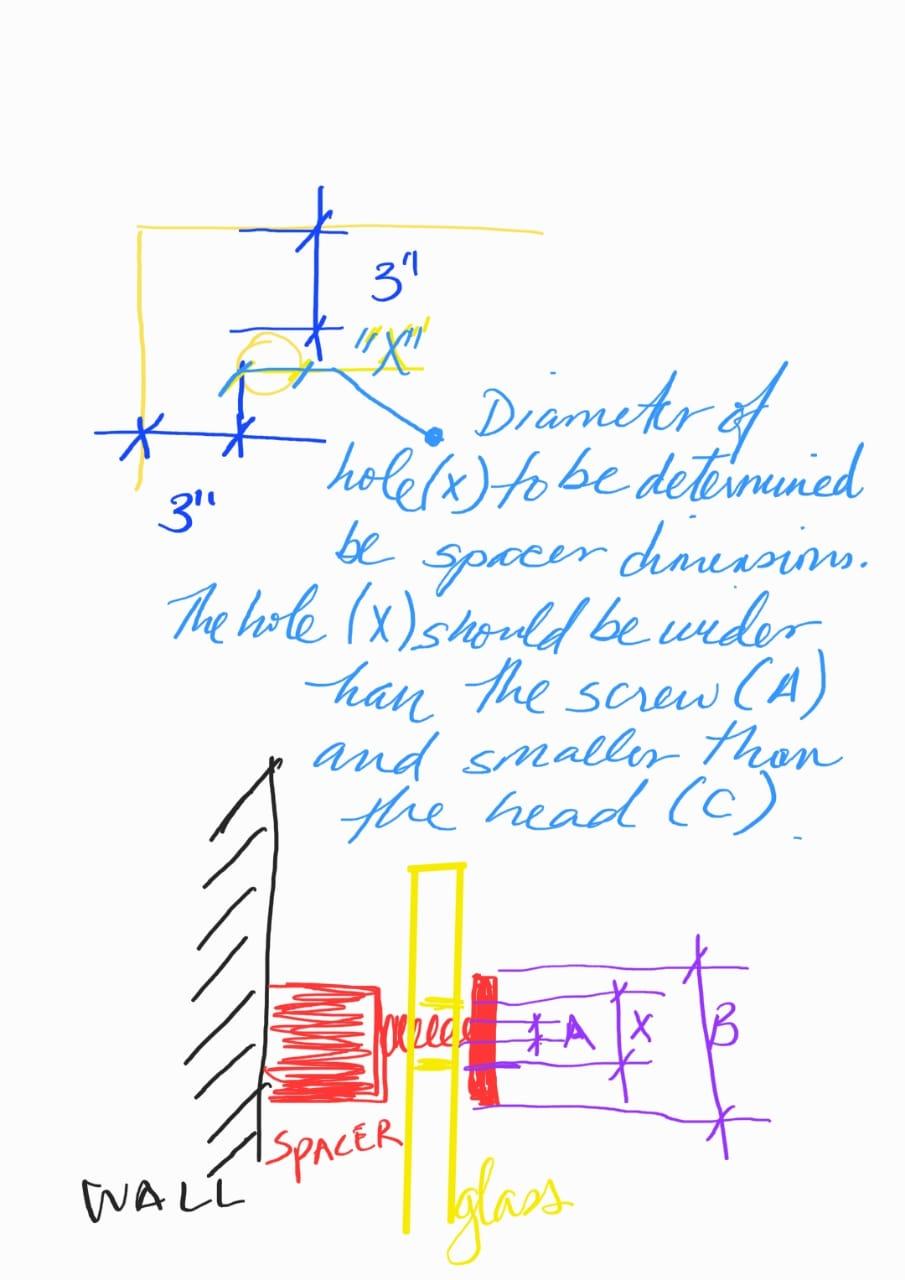 3"
"X"
Diameter of
hole(x) to be determined
be spacer dimensions.
3"
The hole (X) should be wider
than the screw (A)
and smaller than
the head (C).
A
X
B
SPACER
WALL
glass